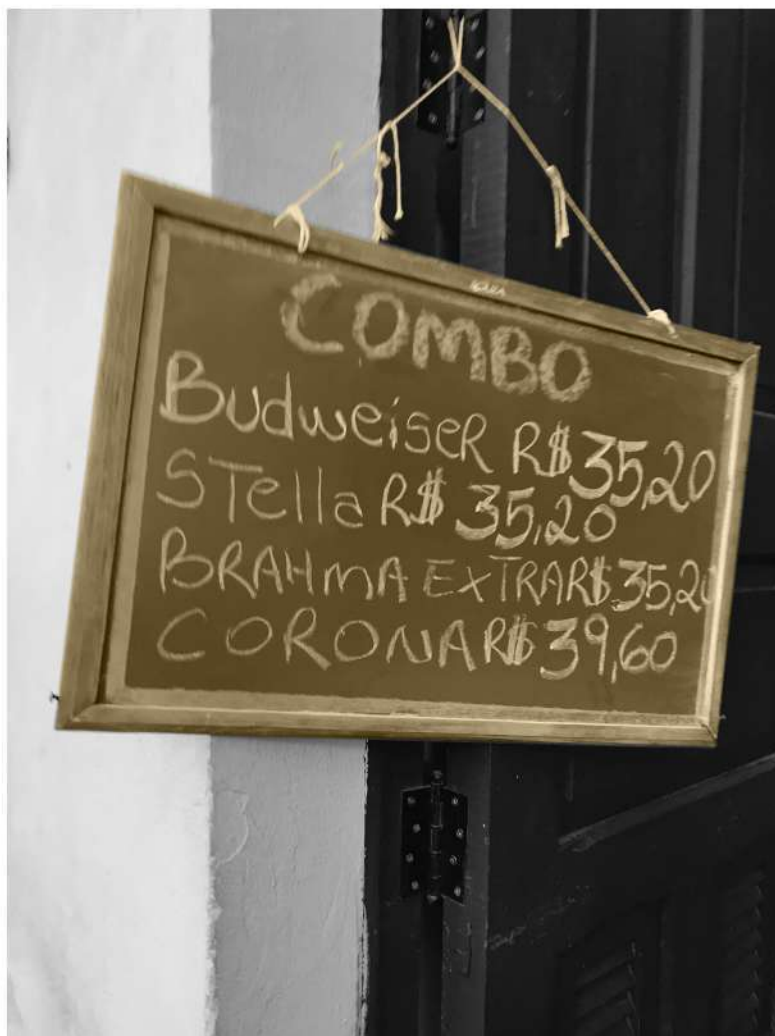 COMBO
BudweiseR R$ 35,20
STella R$ 35,20
BRAHMA EXTRA R$ 35,20
CORONA R$ 39,60